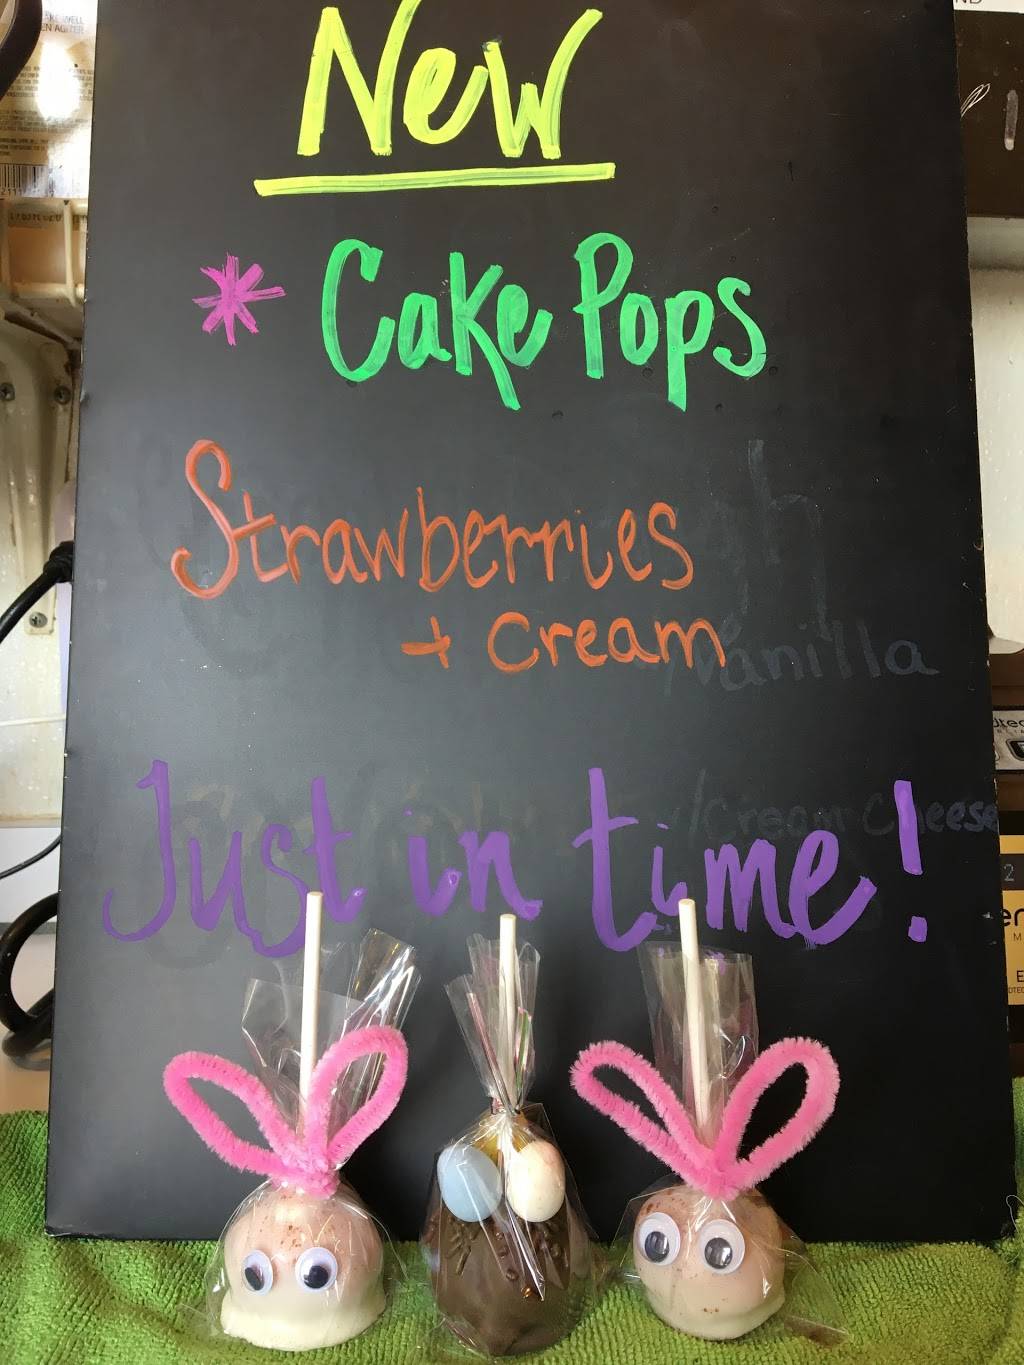 New
* Cake Pops
Strawberries
+ Cream
Vanilla
w/Cream Cheese
Just in time!